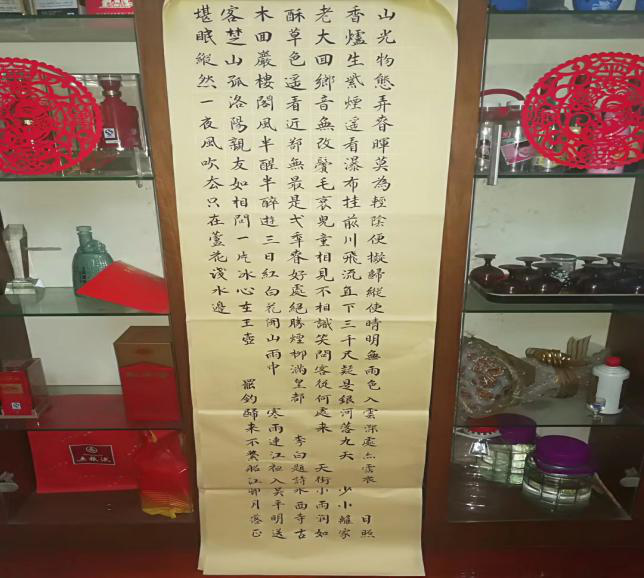 山光物態弄春暉莫為輕陰便擬歸縱使晴明無雨色入雲深處亦霑衣 日照
香爐生紫煙遙看瀑布挂前川飛流直下三千尺疑是銀河落九天 少小離家
老大回鄉音無改鬢毛衰兒童相見不相識笑問客從何處來 天街小雨潤如
酥草色遙看近郤無最是弌秊春好處絕勝煙柳滿皇都 李白題詩水西寺古
木回巖樓閣風半醒半醉遊三日紅白花開山雨中 寒雨連江夜入吴平明送
客楚山孤洛陽親友如相問一片冰心在玉壺 罷釣歸來不繫船江邨月落正
堪眠縱然一夜風吹去只在蘆花淺水邊
五粮液